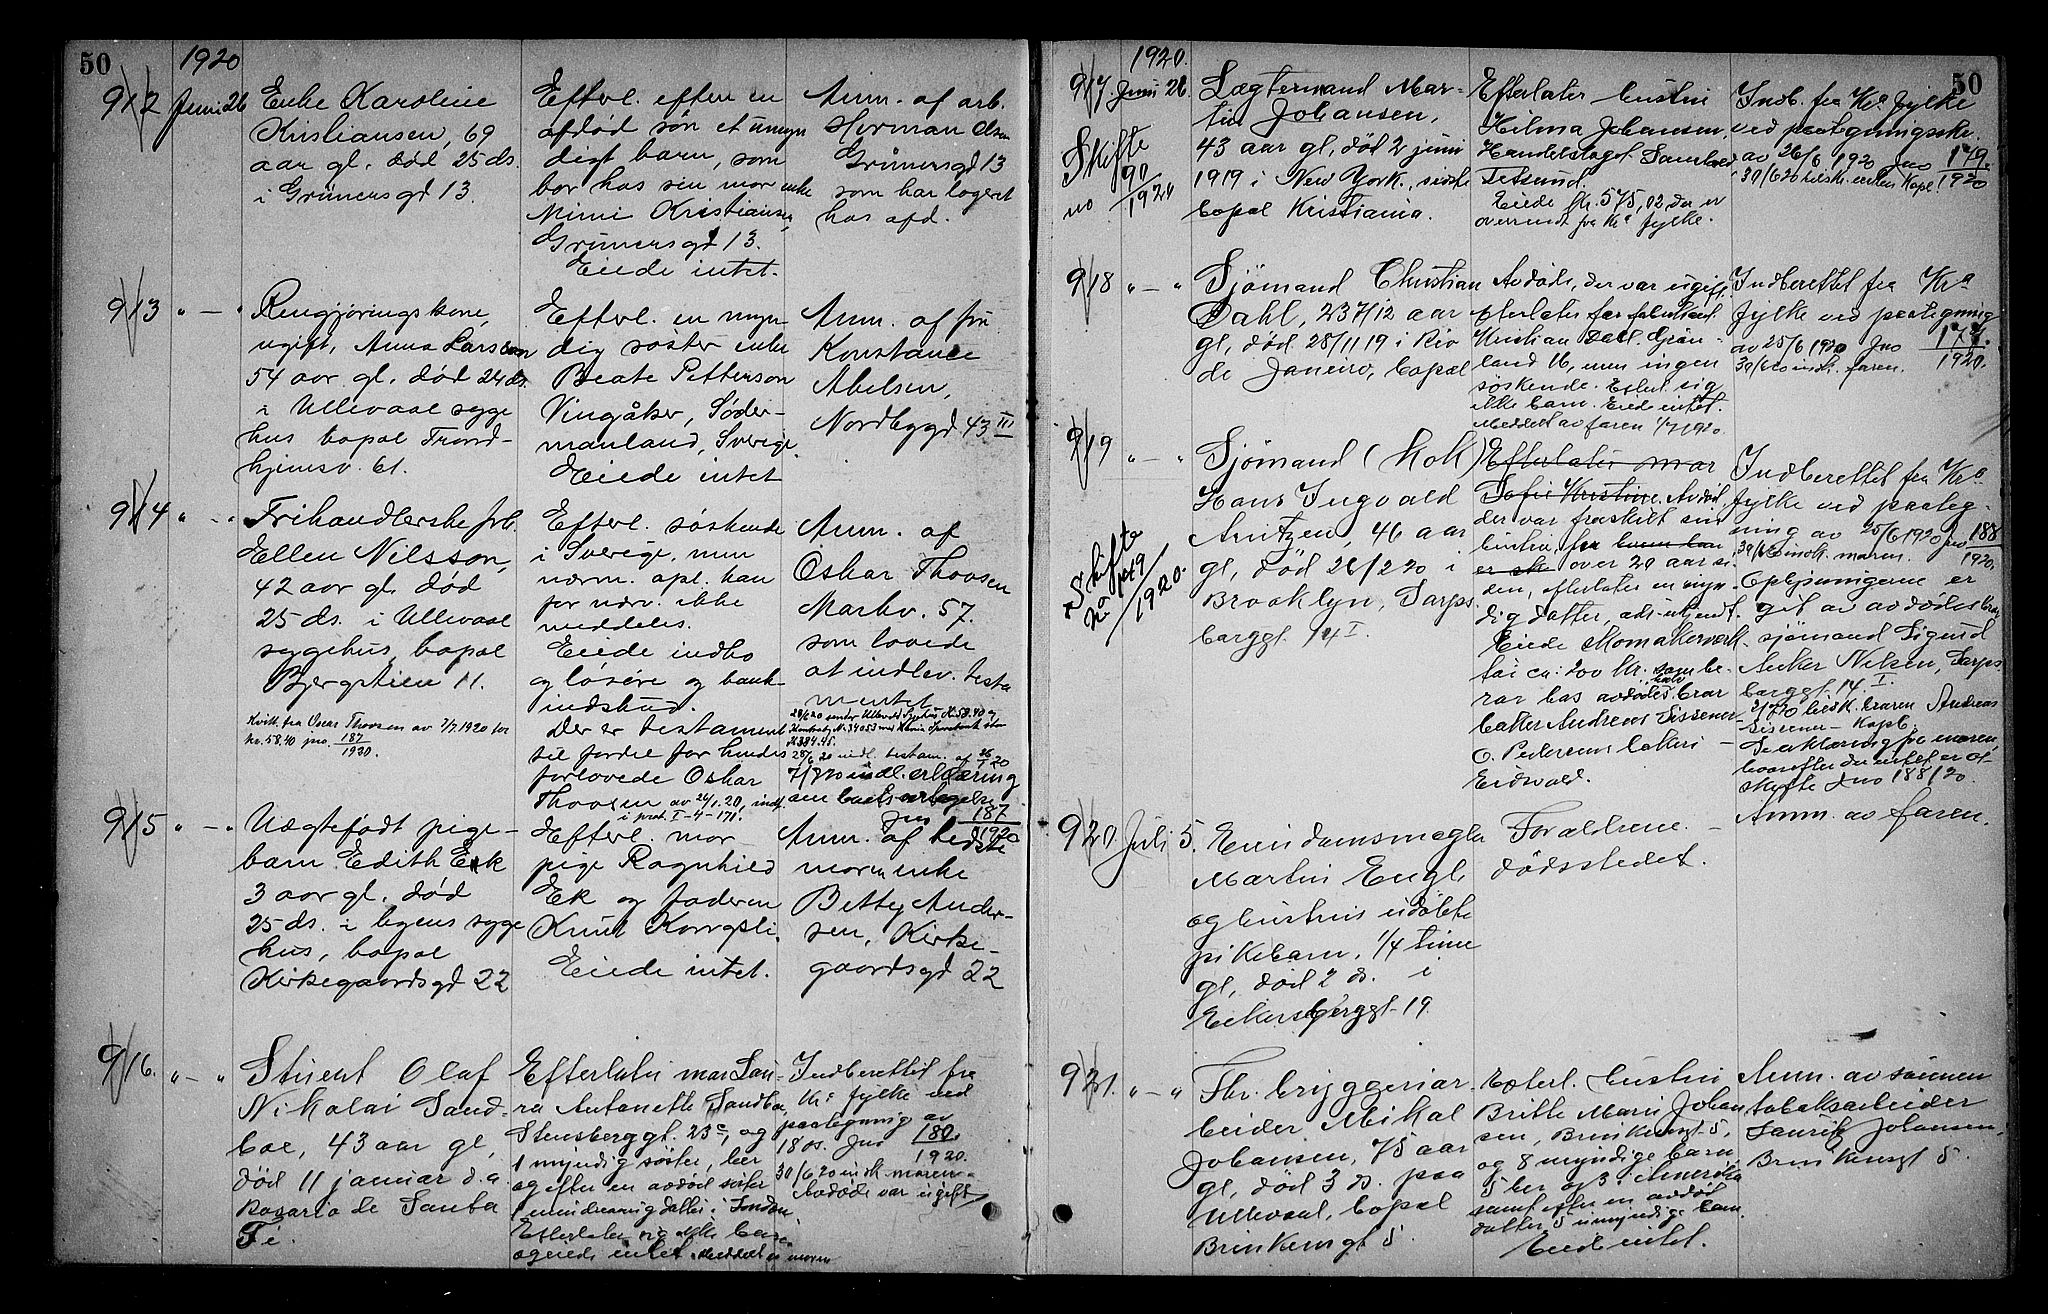 50
1920
912 Juni 26
Enke Karoline
Kristiansen, 69
aar gl. død 25 ds.
i Grünersgd 13.
Efterl. efter en
afdød søn et umyn
digt barn, som
bor hos sin mor enke
Mimi Kristiansen,
Grünersgd 13.
Eiede intet.
Anm. af arb.
Herman Olsen
Grünersgd 13
som har logert
hos afd.
913 " — "
Rengjøringskone,
ugift, Anna Larsson
54 aar gl. død 24 ds.
i Ullevaal syge
hus bopæl Trond-
hjemsv. 61.
Efterl. en myn
dig søster enke
Beate Petterson
Vingåker, Söder-
manland, Sverige.
Eiede intet
Anm. af frk
Konstance
Abelsen,
Nordbygd 43 III
914 " — "
Frihandlerske frk.
Ellen Nilsson,
42 aar gl. død
25 ds. i Ullevaal
sygehus, bopæl
Bjergstien 11.
Kvitt. fra Oscar Thoosen av 7/7 1920 for
kr. 58.40 jno. 187/1920.
Efterl. søskende
i Sverige, men
nærm. opl. kan
for nærv. ikke
meddeles.
Eiede indbo
og løsøre og bank-
indskud.
Der er testament
til fordel for hendes
forlovede Oskar
Thoosen av 26/1.20, indf.
i prot. I-4-171.
Anm. af
Oskar Thoosen
Markv. 57.
som lovede
at indlev. testa
mentet
28/6 20 indl. testam. af 26/1 20
7/7 20 indl. erklæring
jno 187/1920
915 " — "
Uægtefødt pige-
barn Edith Ek
3 aar gl. død
25 ds. i byens syge
hus, bopæl
Kirkegaardsgd 22
Efterl. mor
pige Ragnhild
Ek og faderen
Knut Korvgsli.
Eiede intet.
Anm. af bedste
moren enke
Betty Ander-
sen, Kirke-
gaardsgd 22
916. " — "
Stuert Olaf
Nikolai Sand-
boe, 43 aar gl,
død 11 januar d.a.
Rosario de Santa
Fé.
Efterlater mor Lau-
ra Antonette Sandboe,
Stensberggt. 23c, og
1 myndig søster, her
og efter en avdød søster
1 mindreaarig datter i London.
Efterlater sig ikke barn
og eiede intet. Meddelt av moren
Indberettet fra
Kra fylke ved
paategning av
18 ds. Jno 180/1920.
30/6 20 indk. moren.
Avdøde var ugift
50
1920.
917 Juni 26.
Skifte
no 90/1920
Lægtermand Mar-
tin Johansen,
43 aar gl, død 2 juni
1919 i New York, sidste
bopæl Kristiania.
Efterlater hustru
Hilma Johansen,
Handelslaget Samhold
Fetsund.
Eiede kr. 575,02 der er
oversendt fra Kra fylke.
Indb. fra Kra fylke
ved paategningsskr.
av 26/6 1920 Jno 179/1920
918 " — "
Sjømand Christian
Dahl, 23 7/12 aar
gl, død 28/11 19 i Rio
de Janeiro, bopæl
Avdøde, der var ugift,
efterlater far fabrikarb.
Kristian Dahl. Grøn-
land 16, men ingen
søskende. Efterl. sig
ikke barn. Eiede intet.
Meddelt av faren 1/7 1920.
Indberettet fra Kra
fylke ved paategning
av 25/6 1920 Jno 177/1920.
30/6 20 indk. faren.
919 " — "
Skifte
no 149/1920.
Sjømand (kok)
Hans Ingvald
Arntzen, 46 aar
gl, død 26/2 20 i
Brooklyn, Sarps-
borggt. 14 I.
Efterlater mor
Sofie Kristine. Avdøde
der var fraskilt sin
hustru, for
over 20 aar si
den, efterlater en myn-
dig datter,
Eiede Skomakerverk-
tøi ca: 200 kr. som be-
ror hos avdødes halvbror
batter Andreas Sissener
c. Pedersens bakeri
Eidsvold.
Indberettet fra Kra
fylke ved paateg-
ning av 25/6 1920 Jno 188/1920.
30/6 20 indk. moren.
Oplysningerne er
git av avdødes bror
sjømand Sigurd
Anker Nilsen, Sarps
borggt. 14 I.
2/7 20 tilsk. broren Andreas
Sissener — Kapb.
Se erklæring fra moren,
hvorefter der intet er at
skifte Jno 188/20.
920. Juli 5.
Eiendomsmægler
Martin Engh
og hustrus udøbte
pikebarn, 1/4 time
gl, død 2 ds. i
Eckersberggt. 19
Forældrene. —
dødsstedet.
Anm. av faren.
921. " — "
Fhr. bryggeriar-
beider Mikal
Johansen, 75 aar
gl, død 3 ds. paa
Ullevaal, bopæl
Brinkensgt 5
Efterl. hustru
Britte Marie Johan
sen, Brinkensgt. 5,
og 8 myndige barn,
5 her og 3 i Amerika
samt efter en avdød
datter, 5 umyndige barn.
Eiede intet.
Anm. av sønnen
tobaksarbeider
Lauritz Johansen,
Brinkensgt 5.